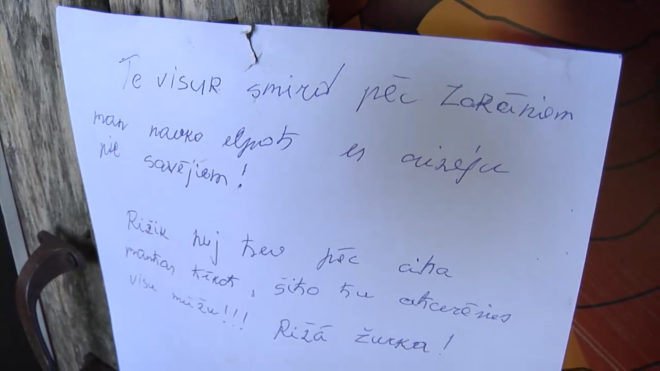 Te visur smird pēc Zaķēniem
man navko elpot es aizeju
pie savējiem!
Rižik huj tev pēc cita
mantas tīkot, šito tu atcerēsies
visu mūžu!!! Rižā žurka!